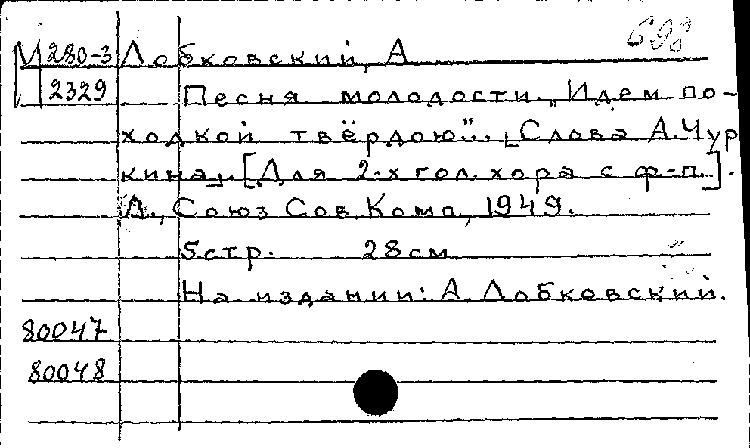 698
М 280-3 Лобковский, А
2329 Песня молодости. „Идем по-
ходкой твёрдою"... [Слова А. Чур
кина]. [Для 2-х гол. хора с ф-п.].
Л., Союз Сов. Комп, 1949.
5 стр. 28 см
На издании: А Лобковский.
80047
80048